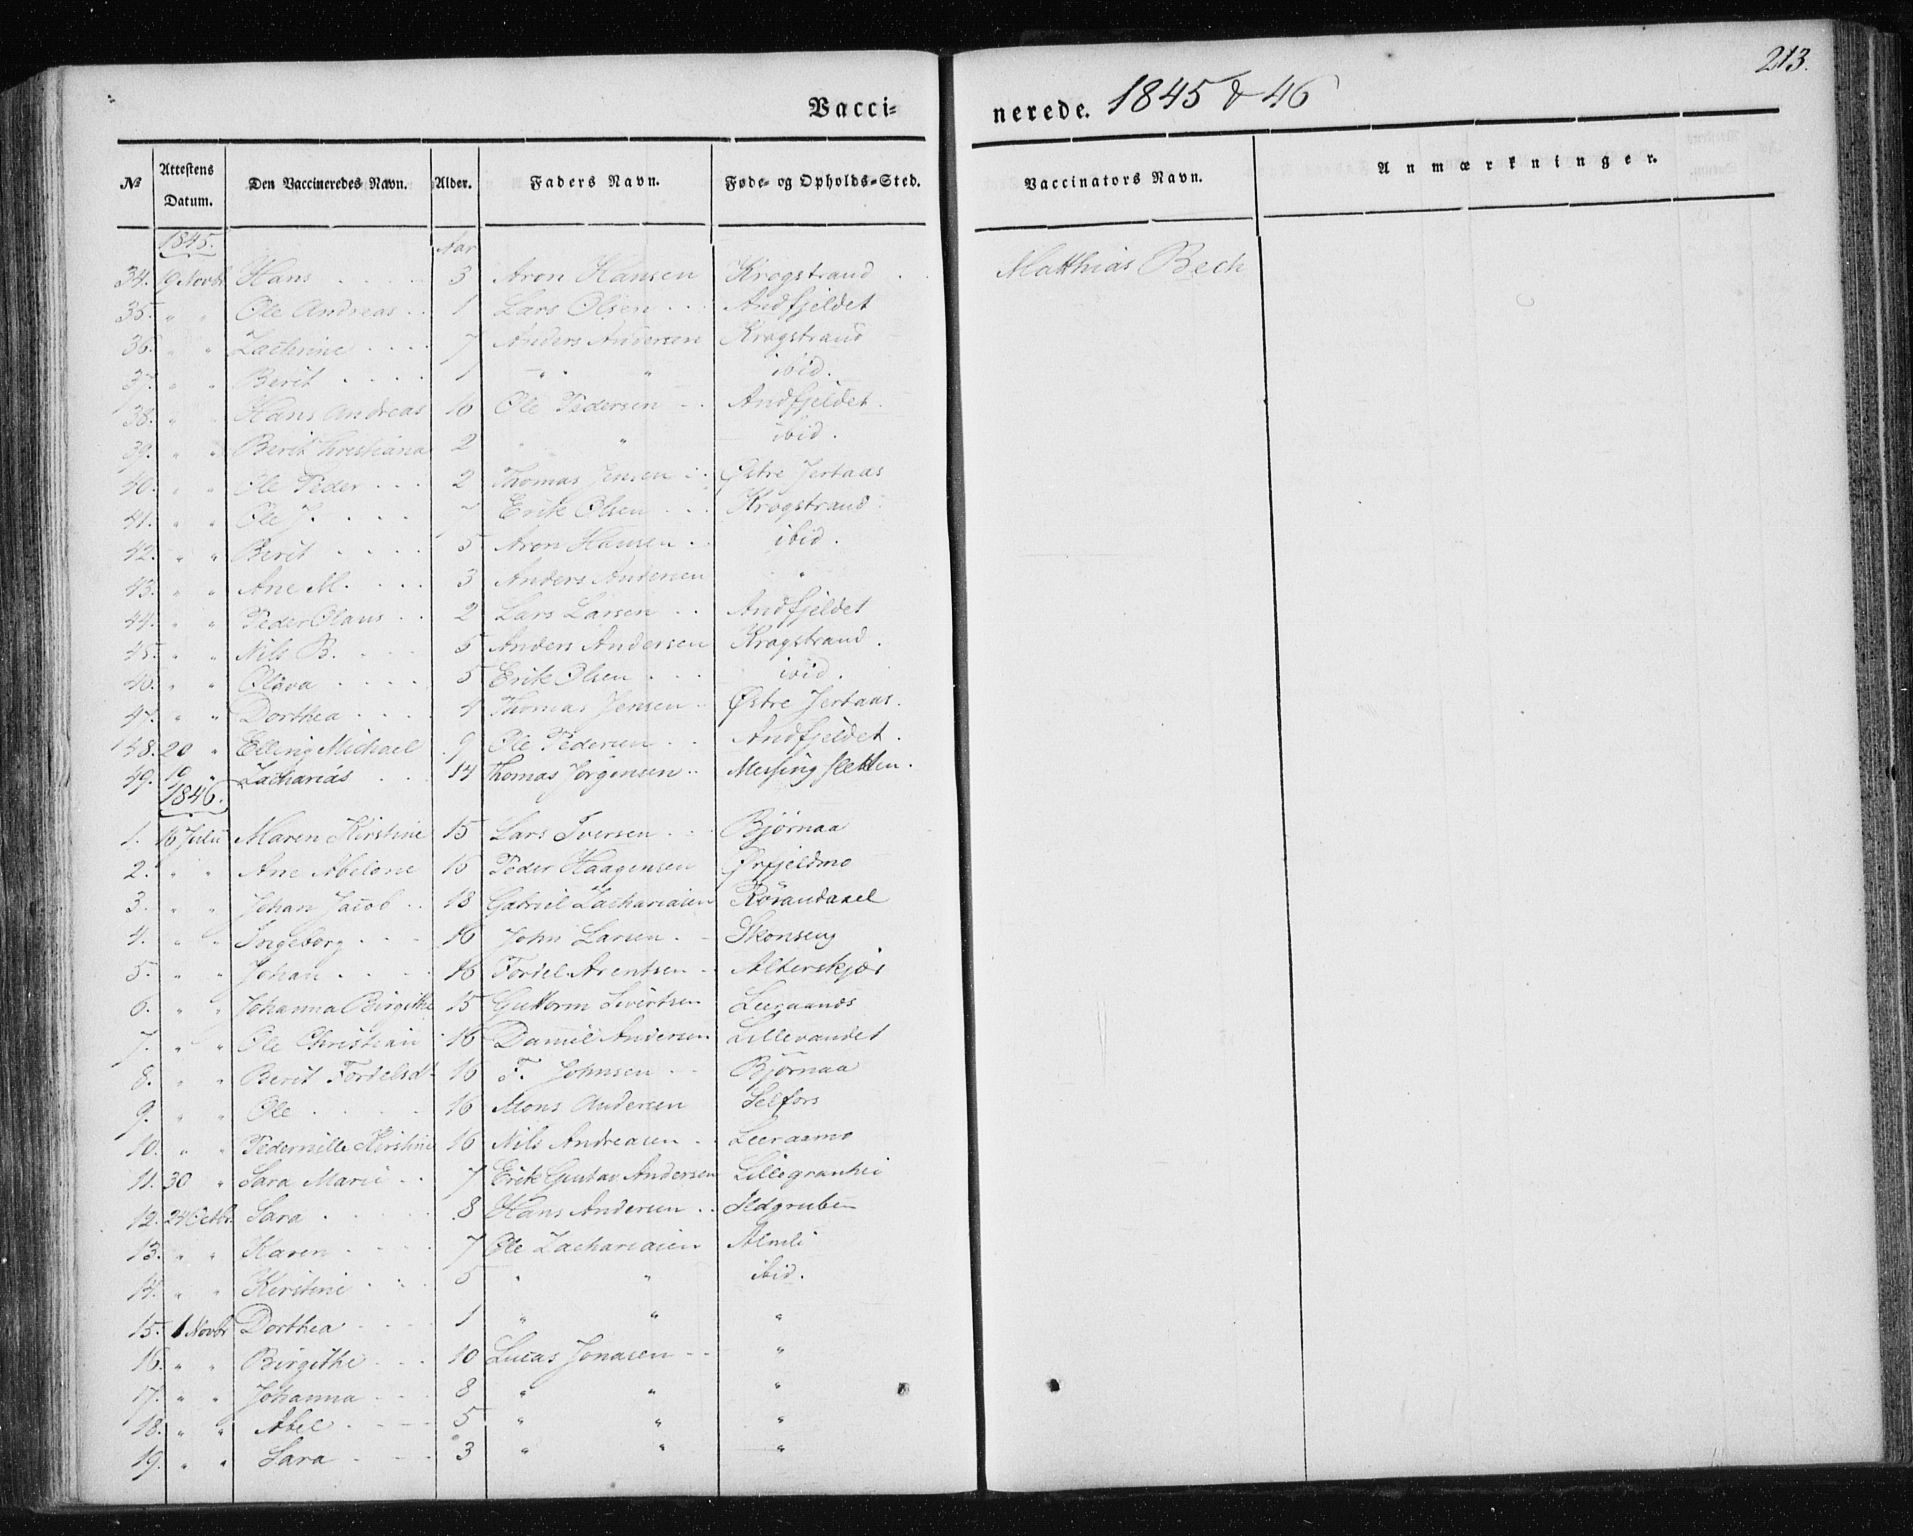 213.
Vacci=
nerede. 1845 & 46
№ Attestens Datum. Den Vaccineredes Navn. Alder. Faders Navn. Føde- og Opholds-Sted. Vaccinators Navn. Anmærkninger.
1845. Aar
34. 19 Novbr Hans 3 Aron Hansen Krogstrand Matthias Bech
35. " " Ole Andreas 1 Lars Olsen Andfjeldet
36. " " Zachrine 7 Anders Andersen Krogstrand
37. " " Berit 1 " " ibid.
38. " " Hans Andreas 10 Ole Pedersen Andfjeldet
39. " " Berit Christiana 2 " " ibid.
40. " " Ole Peder 2 Thomas Jensen Østre Jertaas
41. " " Ole J. 7 Erik Olsen Krogstrand
42. " " Berit 5 Aron Hansen ibid.
43. " " Ane M. 3 Anders Andersen "
44. " " Peder Olaus 2 Lars Larsen Andfjeldet
45. " " Nils B. 5 Anders Andersen Krogstrand
46. " " Olava 5 Erik Olsen ibid.
47. " " Dorthea 4 Thomas Jensen Østre Jertaas.
48. 20 " Elling Michael 9 Ole Pedersen Andfjeldet.
49. 19 " Zacharias 14 Thomas Jørgensen Messingsletten.
1846.
1. 16 Julii Maren Kirstine 15 Lars Iversen Bjørnaa
2. " " Ane Abelone 16 Peder Haagensen Ørfjeldmo
3. " " Johan Jacob 18 Gabriel Zachariasen
4. " " Ingeborg 16 John Larsen Skonseng
5. " " Johan 16 Fordel Arentsen Alterskjær
6. " " Johanna Birgithe 15 Guttorm Sivertsen
7. " " Ole Christian 16 Daniel Andersen Lillevandet
8. " " Berit Fordelsdt 16 F. Johnsen Bjørnaa
9. " " Ole 16 Mons Andersen Selfors
10. " " Pedernille Kirstine 16 Nils Andreasen Leeraamo
11. 30 " Sara Marie 7 Erik Gustav Andersen Lillegranhei
12. 24 Octbr. Sara 8 Hans Andersen Ildgruben
13. " " Karen 7 Ole Zachariasen Almli
14. " " Kirstine 5 " " ibid.
15. 1 Novbr Dorthea 1 " " "
16. " " Birgithe 10 Lucas Jonasen "
17. " " Johanna 8 " " "
18. " " Abel 5 " " "
19. " " Sara 3 " " "